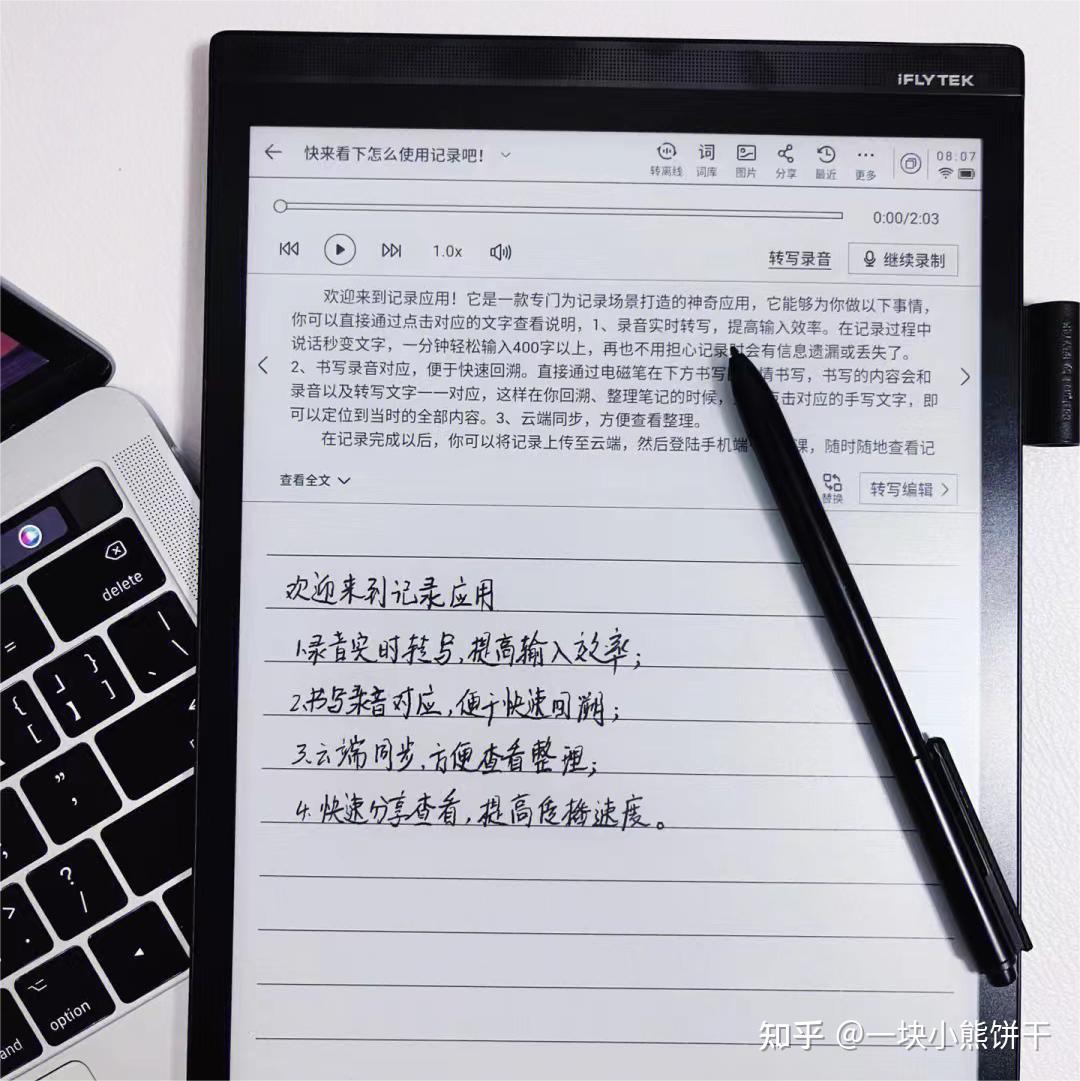 iFLYTEK
快来看下怎么使用记录吧！
转离线 词库 图片 分享 最近 更多
08:07
0:00/2:03
1.0x
转写录音 继续录制
欢迎来到记录应用！它是一款专门为记录场景打造的神奇应用，它能够为你做以下事情，
你可以直接通过点击对应的文字查看说明，1、录音实时转写，提高输入效率。在记录过程中
说话秒变文字，一分钟轻松输入400字以上，再也不用担心记录时会有信息遗漏或丢失了。
2、书写录音对应，便于快速回溯。直接通过电磁笔在下方书写 情书写，书写的内容会和
录音以及转写文字一一对应，这样在你回溯、整理笔记的时候， 击对应的手写文字，即
可以定位到当时的全部内容。3、云端同步，方便查看整理。
在记录完成以后，你可以将记录上传至云端，然后登陆手机端 课，随时随地查看记
查看全文 替换 转写编辑
欢迎来到记录应用
1.录音实时转写，提高输入效率；
2.书写录音对应，便于快速回溯；
3.云端同步，方便查看整理；
4.快速分享查看，提高传播速度。
delete
=
|
\
}
]
】
{
[
"
,
;
?
/
>
.
option
and
知乎 @一块小熊饼干